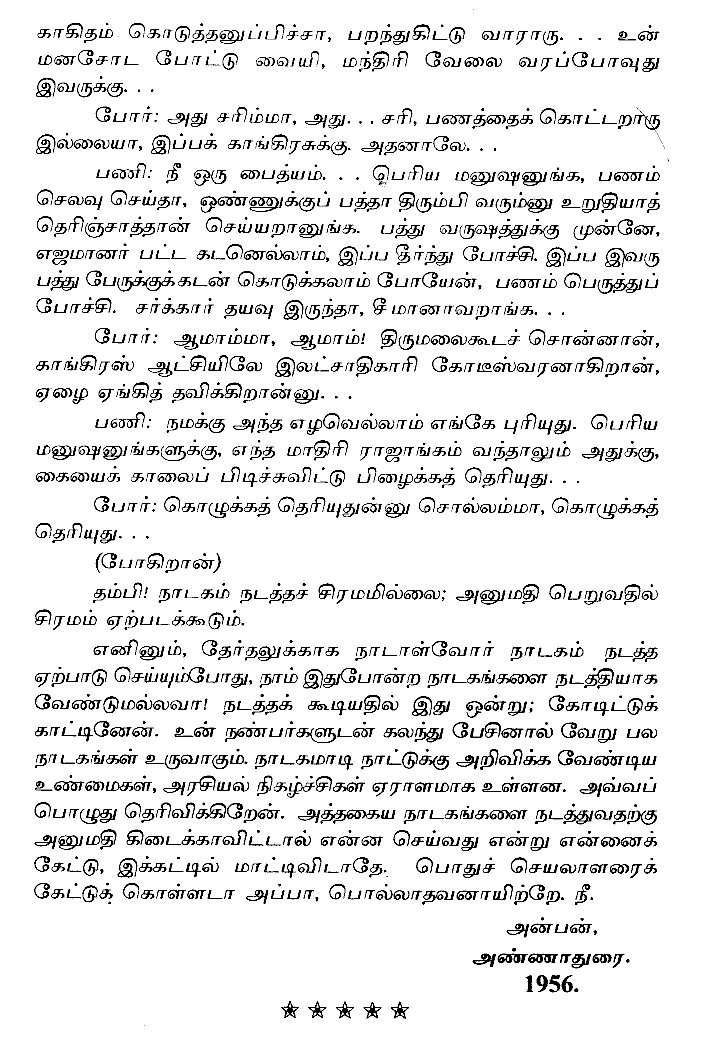 காகிதம் கொடுத்தனுப்பிச்சா, பறந்துகிட்டு வாராரு. . . உன்
மனசோட போட்டு வையி, மந்திரி வேலை வரப்போவுது
இவருக்கு. . .
போர்: அது சரிம்மா, அது. . . சரி, பணத்தைக் கொட்டறாரு
இல்லையா, இப்பக் காங்கிரசுக்கு. அதனாலே. . .
பணி: நீ ஒரு பைத்யம். . . பெரிய மனுஷனுங்க, பணம்
செலவு செய்தா, ஒண்ணுக்குப் பத்தா திரும்பி வரும்னு உறுதியாத்
தெரிஞ்சாத்தான் செய்யறானுங்க. பத்து வருஷத்துக்கு முன்னே,
எஜமானர் பட்ட கடனெல்லாம், இப்ப தீர்ந்து போச்சி. இப்ப இவரு
பத்து பேருக்குக்கடன் கொடுக்கலாம் போயேன், பணம் பெருத்துப்
போச்சி. சர்க்கார் தயவு இருந்தா, சீமானாவறாங்க. . .
போர்: ஆமாம்மா, ஆமாம்! திருமலைகூடச் சொன்னான்,
காங்கிரஸ் ஆட்சியிலே இலட்சாதிகாரி கோடீஸ்வரனாகிறான்,
ஏழை ஏங்கித் தவிக்கிறான்னு. . .
பணி: நமக்கு அந்த எழவெல்லாம் எங்கே புரியுது. பெரிய
மனுஷனுங்களுக்கு, எந்த மாதிரி ராஜாங்கம் வந்தாலும் அதுக்கு,
கையைக் காலைப் பிடிச்சுவிட்டு பிழைக்கத் தெரியுது. . .
போர்: கொழுக்கத் தெரியுதுன்னு சொல்லம்மா, கொழுக்கத்
தெரியுது. . .
(போகிறான்)
தம்பி! நாடகம் நடத்தச் சிரமமில்லை; அனுமதி பெறுவதில்
சிரமம் ஏற்படக்கூடும்.
எனினும், தேர்தலுக்காக நாடாள்வோர் நாடகம் நடத்த
ஏற்பாடு செய்யும்போது, நாம் இதுபோன்ற நாடகங்களை நடத்தியாக
வேண்டுமல்லவா! நடத்தக் கூடியதில் இது ஒன்று; கோடிட்டுக்
காட்டினேன். உன் நண்பர்களுடன் கலந்து பேசினால் வேறு பல
நாடகங்கள் உருவாகும். நாடகமாடி நாட்டுக்கு அறிவிக்க வேண்டிய
உண்மைகள், அரசியல் நிகழ்ச்சிகள் ஏராளமாக உள்ளன. அவ்வப்
பொழுது தெரிவிக்கிறேன். அத்தகைய நாடகங்களை நடத்துவதற்கு
அனுமதி கிடைக்காவிட்டால் என்ன செய்வது என்று என்னைக்
கேட்டு, இக்கட்டில் மாட்டிவிடாதே. பொதுச் செயலாளரைக்
கேட்டுக் கொள்ளடா அப்பா, பொல்லாதவனாயிற்றே. நீ.
அன்பன்,
அண்ணாதுரை.
1956.